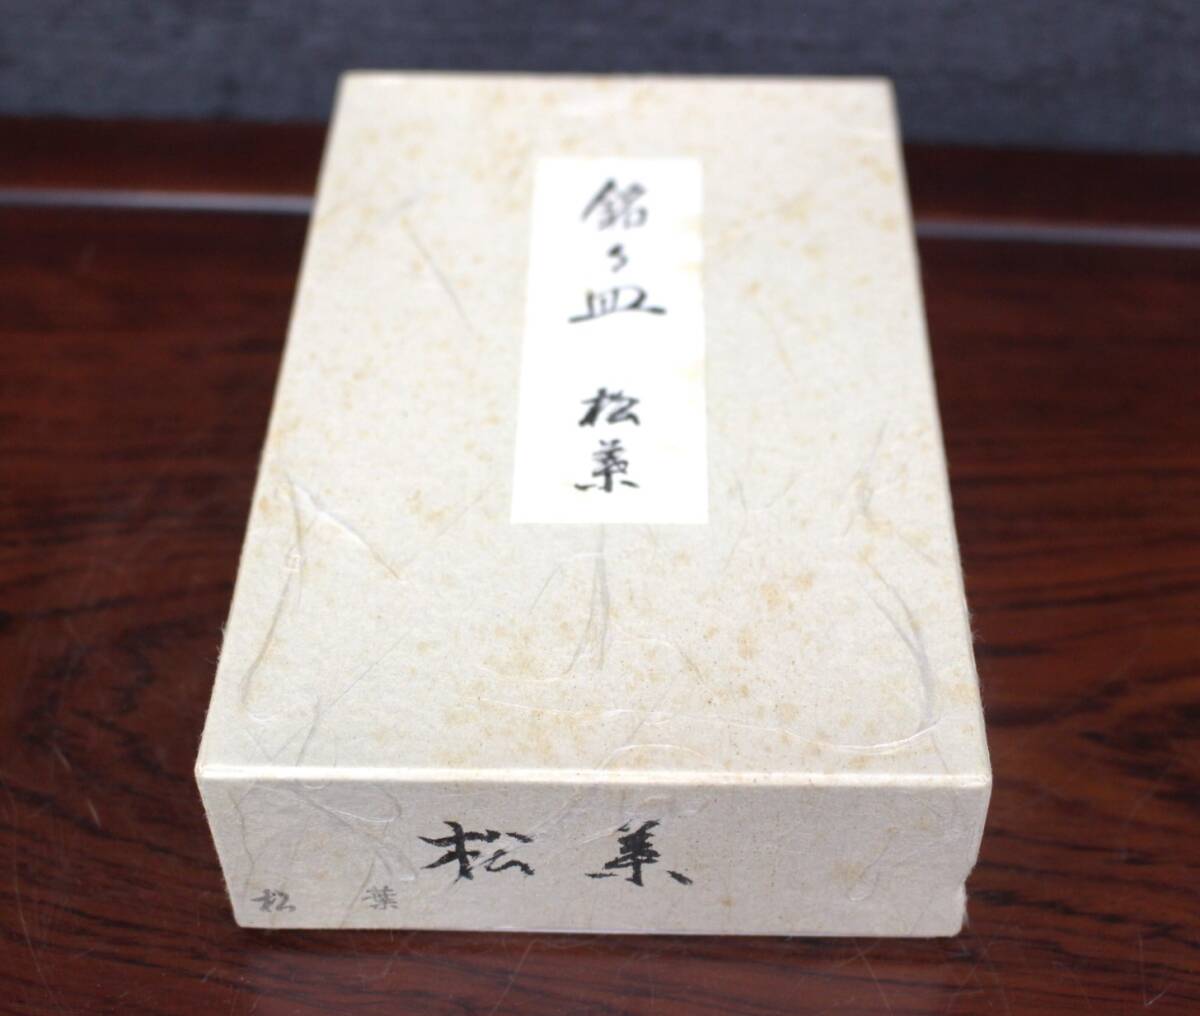 銘々皿 松葉
松葉
松葉